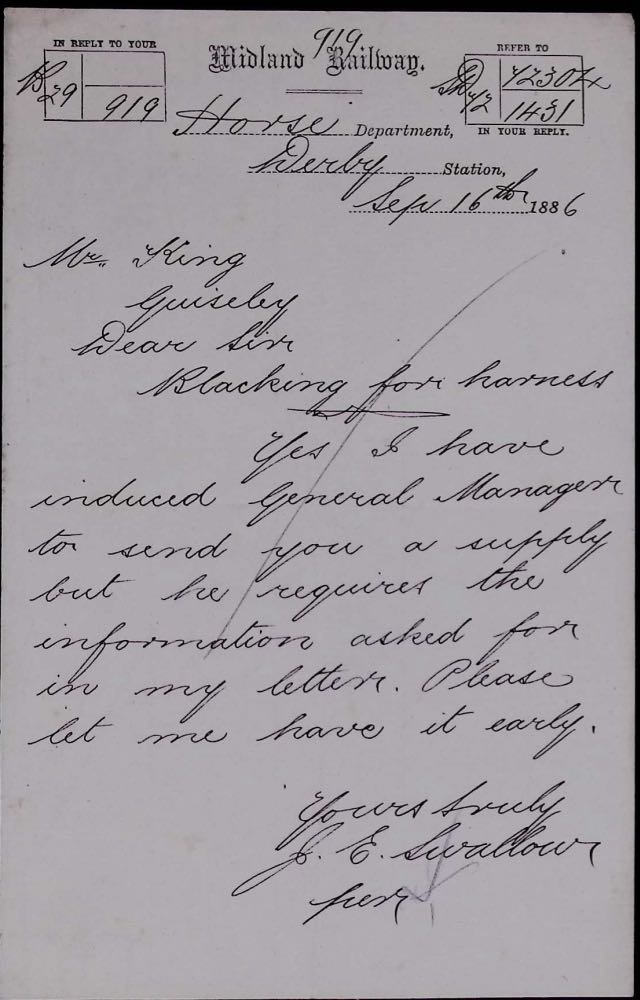 919
IN REPLY TO YOUR
B 29
919
Midland Railway.
REFER TO
42
1431
IN YOUR REPLY.
Horse Department,
Derby Station,
Sep 16th 1886
Mr. King
Guiseley
Dear Sir
Blacking for harness
Yes I have
induced General Manager
to send you a supply
but he requires the
information asked for
in my letter. Please
let me have it early.
Yours truly
J. E. Swallow
per